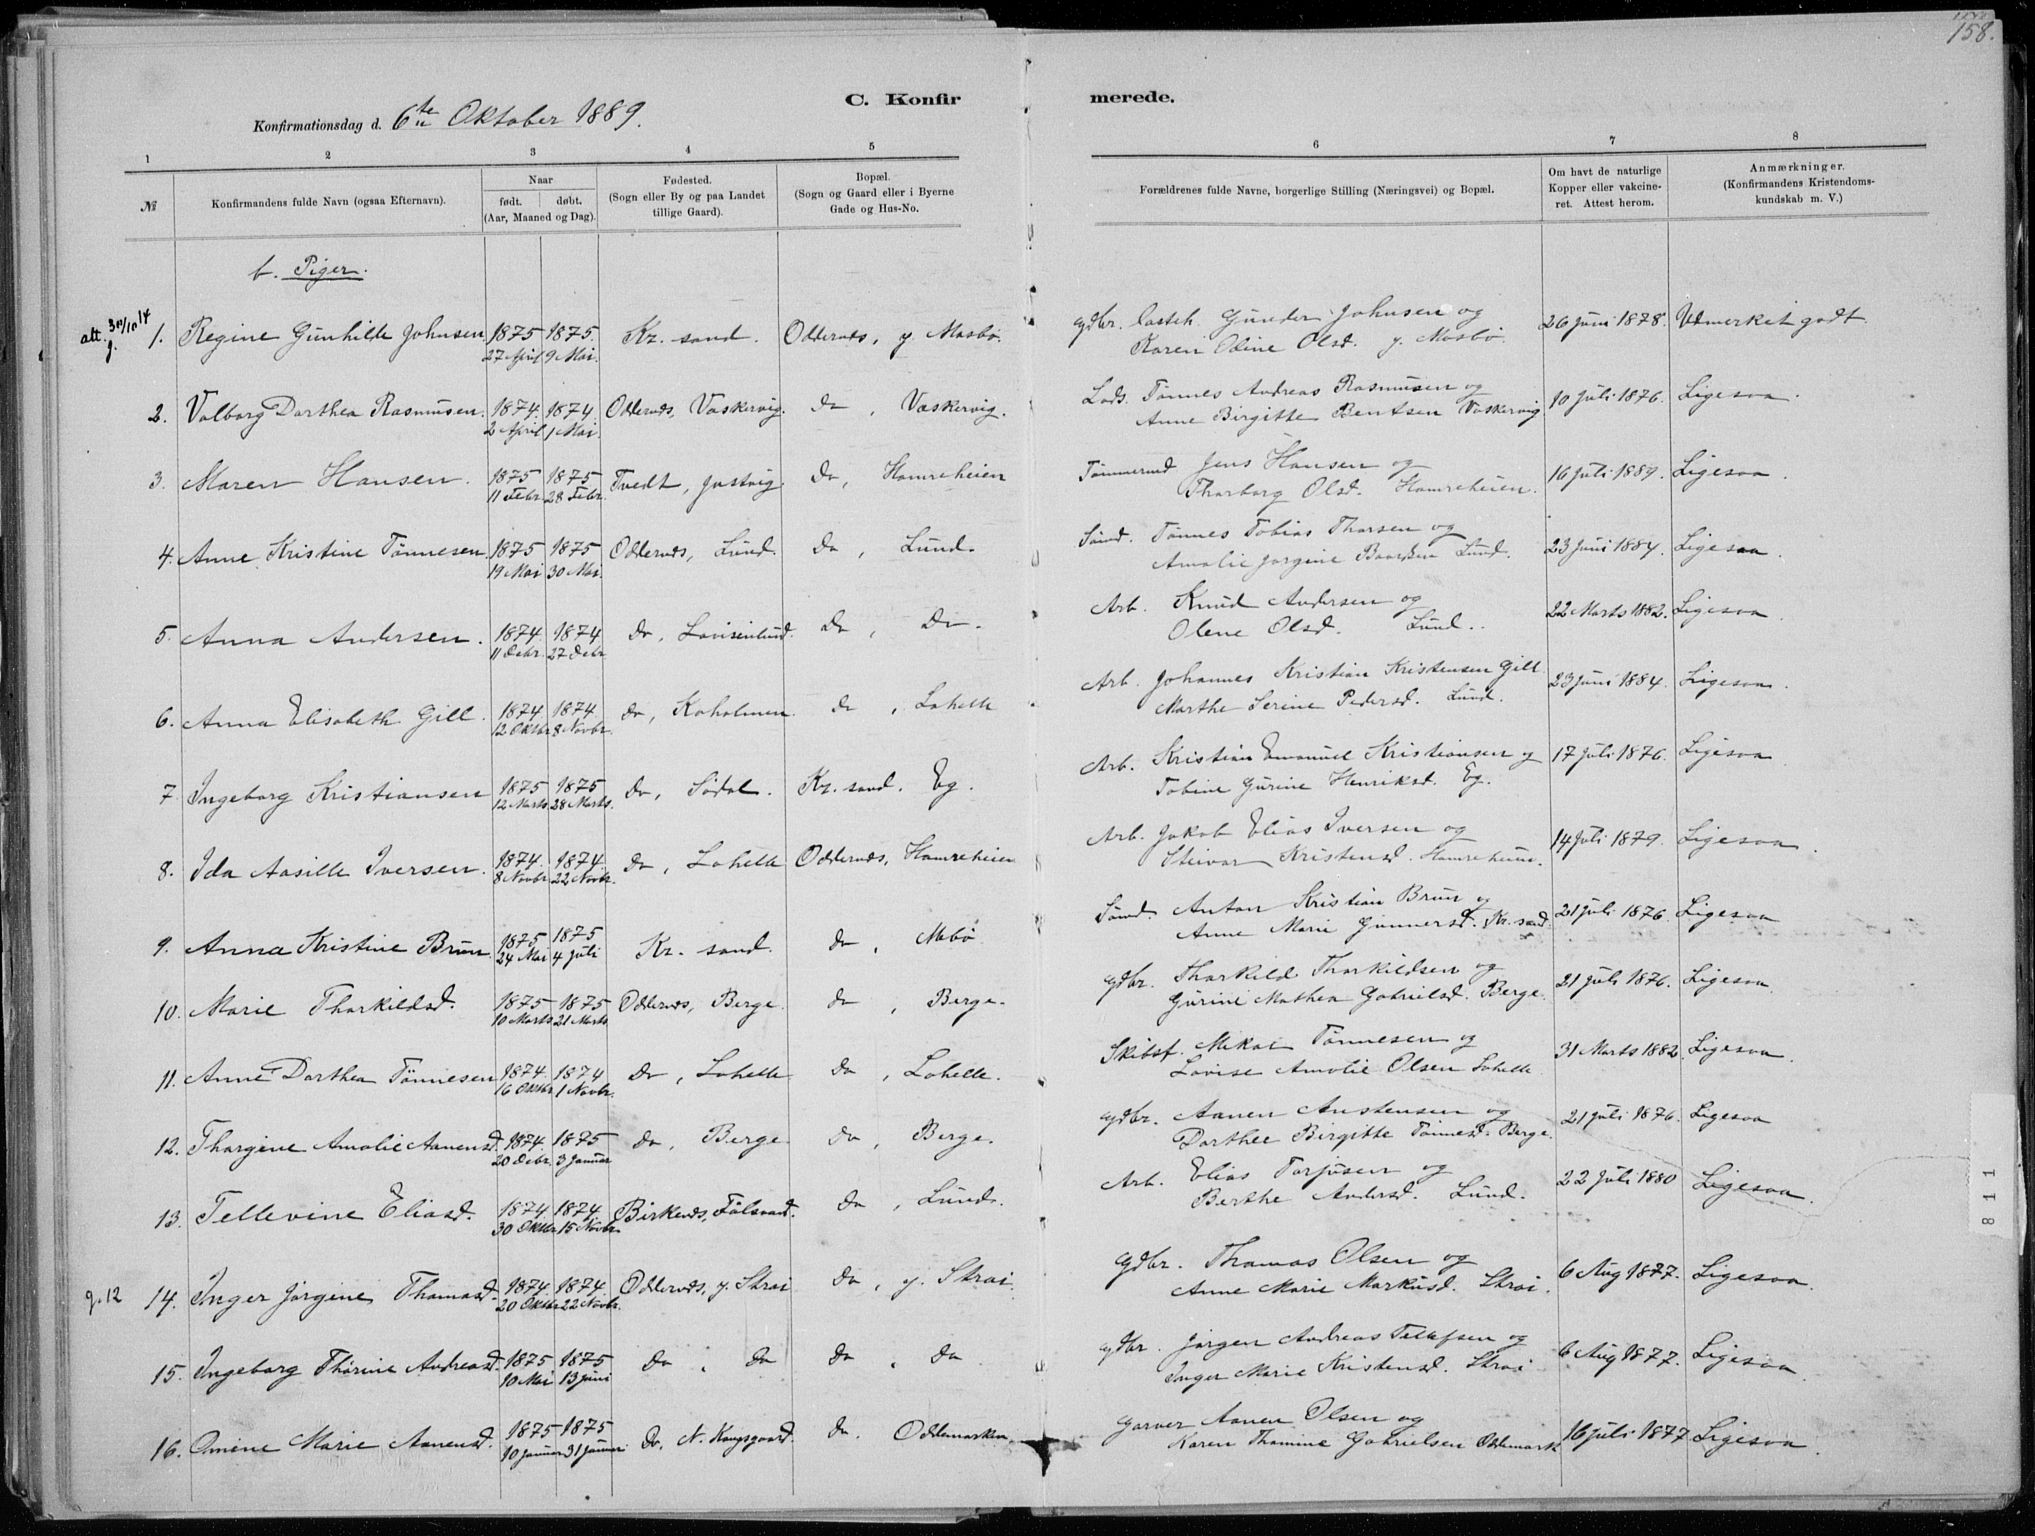 158.
C. Konfir
merede.
Konfirmationsdag d. 6te Oktober 1889.
1 2 3 4 5 6 7 8
№
Konfirmandens fulde Navn (ogsaa Efternavn).
Naar
født. døbt.
(Aar, Maaned og Dag).
Fødested.
(Sogn eller By og paa Landet
tillige Gaard).
Bopæl.
(Sogn og Gaard eller i Byerne
Gade og Hus-No.
Forældrenes fulde Navne, borgerlige Stilling (Næringsvei) og Bopæl.
Om havt de naturlige
Kopper eller vakcine-
ret. Attest herom.
Anmærkninger.
(Konfirmandens Kristendoms-
kundskab m. V.)
b. Piger.
att. 30/10 14
g.
1. Regine Gunhilde Johnsen 1875 1875. Kr. sand. Oddernes, y Mosbø.
27 April 9 Mai.
gdbr. Casteh. Gunder Johnsen og 26 Juni 1878. Udmerket godt
Karen Odine Olsd. y. Mosbø.
2. Valborg Dorthea Rasmusen. 1874. 1874 Oddernes, Vaskervig. do, Vaskervig.
2 April 1 Mai.
Lods. Tønnes Andreas Rasmusen og 10 Juli 1876. Ligesaa.
Anne Birgitte Bentsen Vaskervig
3. Maren Hansen. 1875 1875 Tvedt, Justvig do, Hamreheien
11 Febr. 28 Febr.
Tømmermd Jens Hansen og 16 Juli 1889. Ligesaa.
Thorborg Olsd. Hamreheien.
4. Anne Kristine Tønnesen. 1875 1875 Oddernes, Lund. do, Lund.
19 Mai 30 Mai.
Sømd. Tønnes Tobias Thorsen og 23 Juni 1884. Ligesaa.
Amalie Jørgine Lund.
5. Anna Andersen. 1874 1874 do, Lovisenlund. do, Do.
11 Debr. 27 Debr
Arb. Knud Andersen og 22 Marts 1882. Ligesaa.
Olene Olsd. Lund.
6. Anna Elisabeth Gill. 1874 1874 do, Koholmen. do, Lahelle
12 Oktbr 8 Novbr.
Arb. Johannes Kristian Kristensen Gill 23 Juni 1884. Ligesaa.
Marthe Serine Pedersd. Lund.
7 Ingeborg Kristiansen 1875 1875 do, Sødal. Kr. sand. Eg.
12 Marts 28 Marts.
Arb. Kristian Emanuel Kristiansen og 17 Juli 1876. Ligesaa
Tobine Gurine Henriksd. Eg.
8. Ida Aasille Iversen. 1874. 1874. do, Lahelle Oddernes, Hamreheien
8 Novbr 22 Novbr.
Arb. Jakob Elias Iversen og 14 Juli 1879. Ligesaa.
Steivor Kristensd. Hamreheien.
9. Anna Kristine Brun 1875 1875 Kr. sand. do, Mebø
24 Mai 4 Juli
Sømd. Anton Kristian Brun og 21 Juli 1876. Ligesaa
Anne Marie Gunnersd. Kr. sand
10. Marie Thorkildsd. 1875 1875 Oddernes, Berge. do, Berge.
10 Marts 21 Marts
gdbr. Thorkild Thorkildsen og 21 Juli 1876. Ligesaa.
Gurine Mathea Gabrielsd. Berge.
11. Anne Dorthea Tønnesen 1874. 1874 Do, Lahelle do, Lahelle.
16 Oktbr 1 Novbr.
Skibsf. Mikal Tønnesen og 31 Marts 1882 Ligesaa.
Lovise Amalie Olsen Lahelle.
12. Thorgine Amalie Aanensd. 1874. 1875 do, Berge do, Berge.
20 Debr. 3 Januar
gdbr. Aanen Anstensen og 21 Juli 1876. Ligesaa
Dorthee Birgitte Tønnesd. Berge.
13. Tellevine Eliasd. 1874 1874. Birkenes, Fälsvand. do, Lund.
30 Oktbr 15 Novbr.
Arb. Elias Torjusen og 22 Juli 1880 Ligesaa.
Berthe Andersd. Lund.
g. 12
14. Inger Jørgine Thomasd. 1874. 1874. Oddernes, y. Strai do, y. Strai.
20 Oktbr 22 Novbr.
gdbr. Thomas Olsen og 6 Aug 1877. Ligesaa.
Anne Marie Markusd. Strai.
15. Ingeborg Thorine Andreasd. 1875 1875 do, do do, do
10 Mai 13 Juni
gdbr. Jørgen Andreas Tellefsen og 6 Aug 1877. Ligesaa.
Inger Marie Kristensd. Strai
16. Omine Marie Aanensd. 1875 1875 Do, N. Kongsgaard. do. Oddemarken
10 Januar 31 Januar
Garver Aanen Olsen og 16 Juli 1877 Ligesaa.
Karen Thomine Gabrielsen Oddemark
811